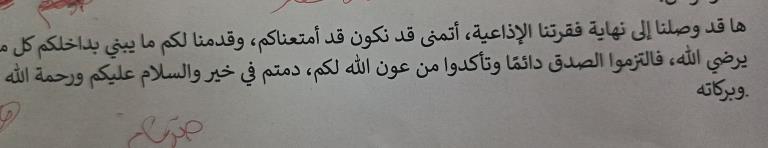 ها قد وصلنا إلى نهاية فقرتنا الإذاعية، أتمنى قد نكون قد أمتعناكم، وقدمنا لكم ما يبني بداخلكم كل
يرضي الله، فالتزموا الصدق دائمًا وتأكدوا من عون الله لكم، دمتم في خير والسلام عليكم ورحمة الله
وبركاته.